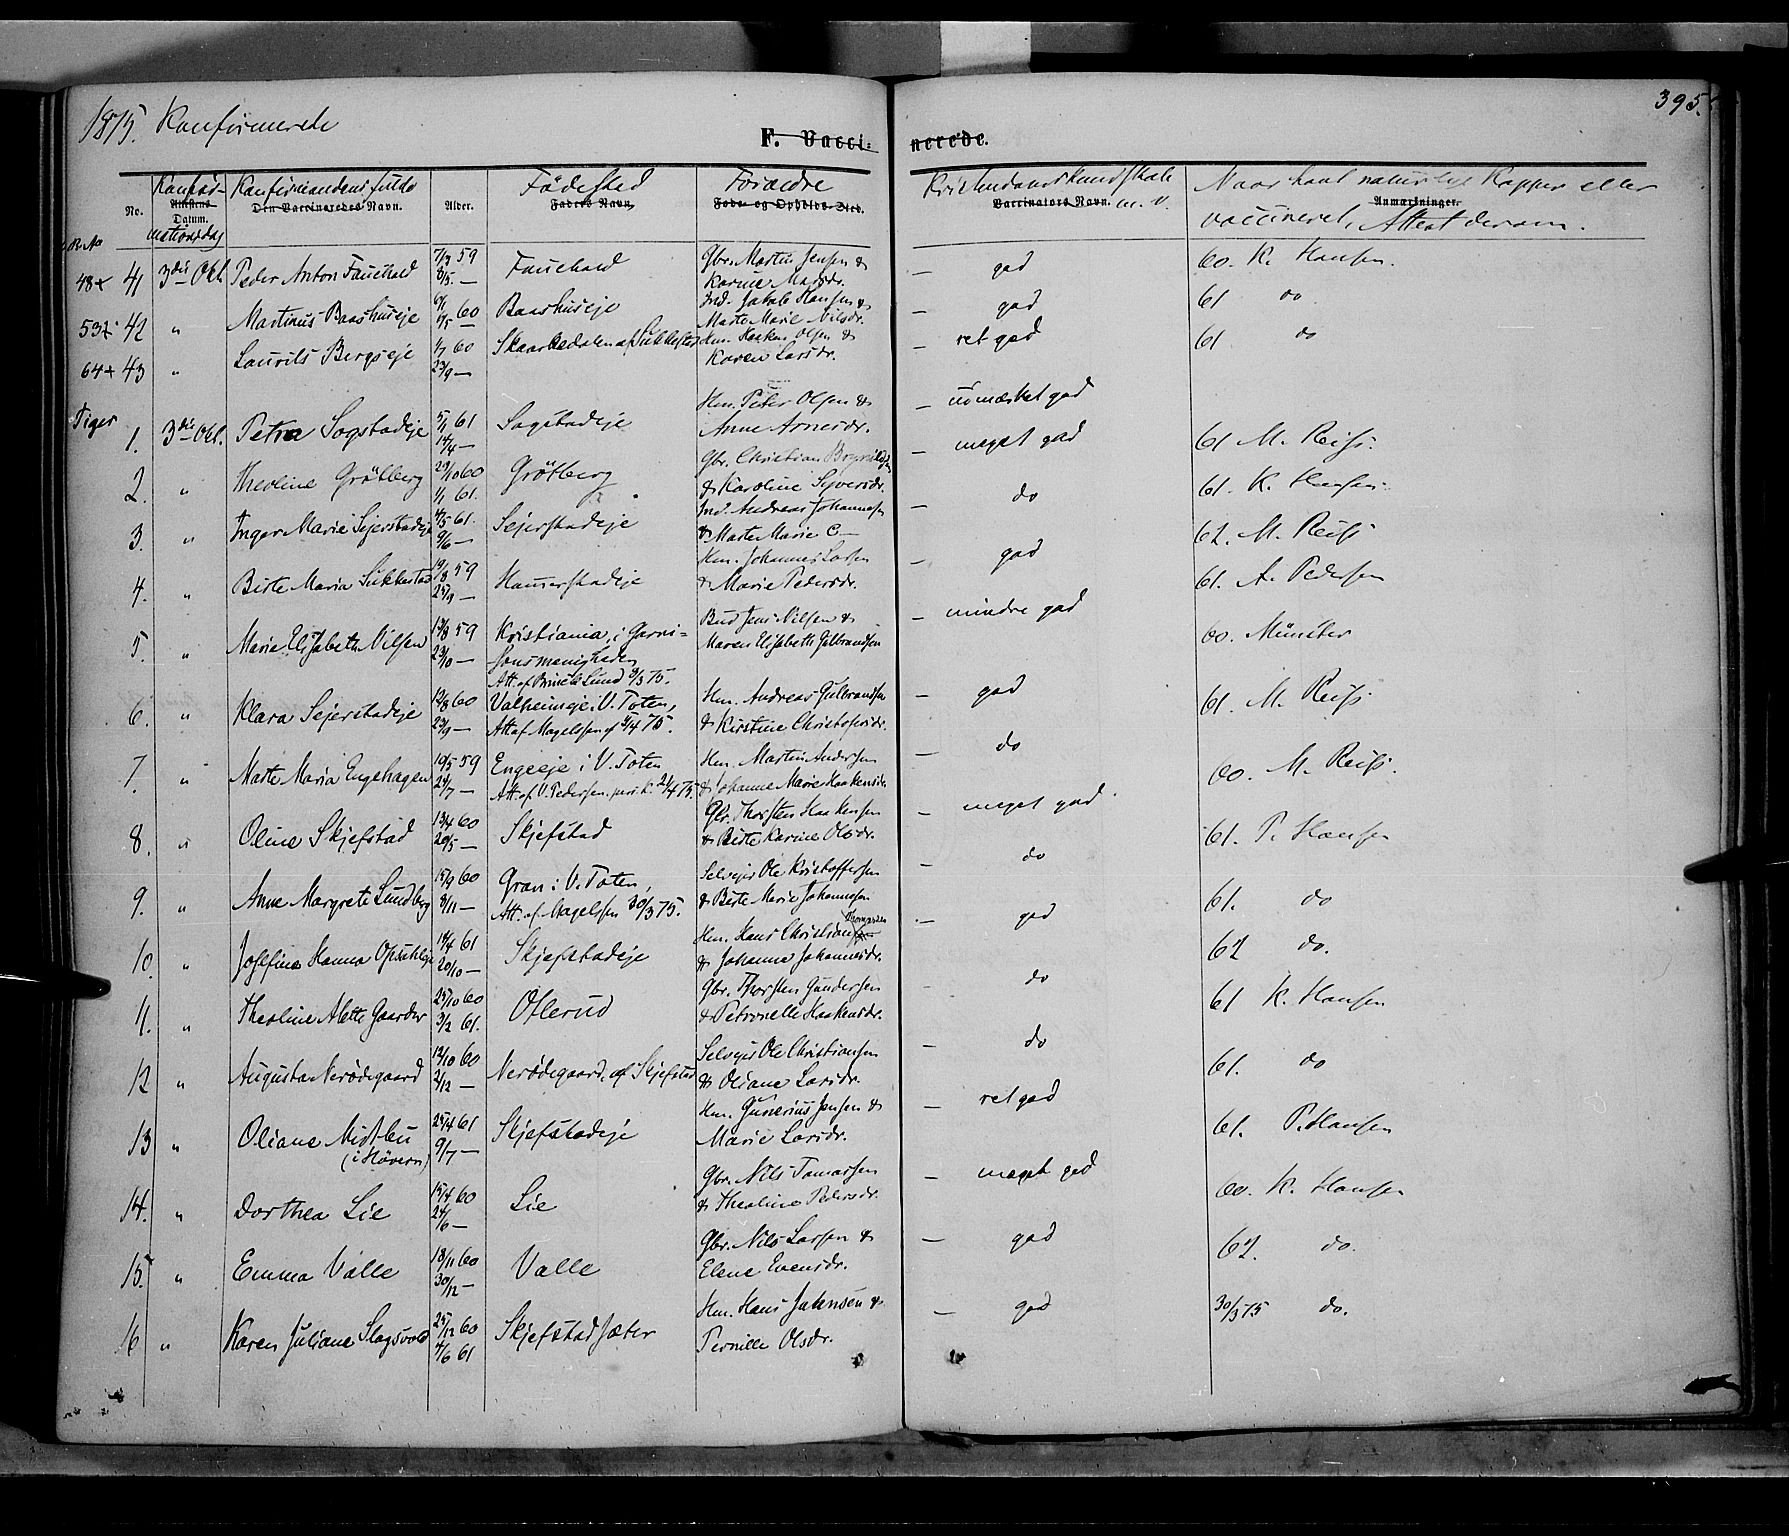 1875. Konfirmerede
395.
F. Vacci- nerede.
No. Konfir- mationsdag Attestens Datum. Konfirmandens fulde Den Vaccineredes Navn. Alder. Födested Faders Navn. Forældre Føde- og Opholds-Sted. Kristendomskundskab m. v. Vaccinators Navn. Naar havt naturlige Kopper eller Anmærkninger. vaccineret, Attest derom.
48+ 41 3die Okt. Peder Anton Fauchald 7/3 59 Fauchald Gbr. Martin Jensen & Karine Madsdr. – god 60. K. Hansen.
42 " Martinus Baashuseje 60 Baashuseje Ind. Jakob Hansen & Marte Marie Nilsdr. – god 61 do
64+ 43 " Laurits Bergseje 1/7 60 23/9 – Hm. Haaken Olsen & Karen Larsdr. – ret god 61 do
Piger
1. 3die Okt. Petra Sogstadeje 5/1 61 14/4 – Sogstadeje Hm. Peter Olsen & Anne Arnesdr. – udmærket god
2. " Theoline Grötberg 29/10 60 1/1 61. Grötberg Gbr. Christian & Karoline Syversdr. – meget god 61 M. Reiss.
3. " Inger Marie Sejerstadeje 4/5 61. 9/6 – Sejerstadeje Ind. Andreas Johannesen & Marte Marie C– – do 61. K. Hansen.
4. " Birte Maria Sukkestad 19/8 59 25/9 – Hammerstadeje Hm. Johannes Larsen & Marie Pedersdr. – god 62. M. Reiss
61. A. Pedersen
5. " Marie Elisabeth Nilsen 59 23/10 – Kristiania, i Garni- sonsmenigheden Att. af Brinch Lund 9/3 75. Bud Jens Nilsen & Maren Elisabeth Gulbrandsen – mindre god 60. Münster
6. " Klara Sejerstadeje 12/8 60 23/9 – Valheimeje i V. Toten, Att af Magelssen af 5/4 75. Hm. Andreas Gulbrandsen & Kirstine Christofersdr. – god 61. M. Reiss
7. " Marte Maria Engehagen 10/5 59 29/7 – Engeeje i V. Toten Att. af V. Pedersen, 21/4 75. Hm. Martin Andersen & Johanne Marie Haakensdr – do 60. M. Reiss.
8. " Oline Skjefstad 13/4 60 20/5 – Skjefstad Gbr. Thorsten Haakensen & Birte Karine Olsdr. – meget god 61. P. Hansen
9. " Anne Margrete Lundberg 15/9 60 3/11 – Gran i V. Toten, Att. af Magelssen 30/3 75. Selvejer Ole Kristoffersen & Birte Marie Johannesen – do 61. do
10. " Josefine Hanna Opsahleje 14/4 61 20/10 – Skjefstadeje Hm. Hans Christian Thomassen & Johanne Johannesdr. – god 62 do.
11. " Theoline Alette Gaarder 25/10 60 3/2 61. Oterud Gbr. Thorsten Gundersen & Petronelle Haakensdr. – do 61 K. Hansen
12 " Augusta Nerödegaard 12/10 60 2/12 – Nerödegaard af Skjefstad Selvejer Ole Christiansen & Oliane Larsdr. – do 61. do
13 " Oliane Midtbu (i Hövern) 25/4 61 9/7 – Skjefstadeje Hm. Gunerius Jensen & Marie Larsdr. – ret god 61. P. Hansen
14. " Dorthea Lie 15/4 60 24/6 – Lie Gbr. Nils Tomassen & Theoline Pedersdr. – meget god 60. K. Hansen
15. " Emma Valle 18/11 60 30/12 – Valle Gbr. Nils Larsen & Elene Evensdr. – god 62. do.
16 " Karen Juliane Slagsvold 25/12 60 4/6 61 Skjefstadsæter Hm. Hans Johansen & Pernille Olsdr. – god 30/3 75 do.